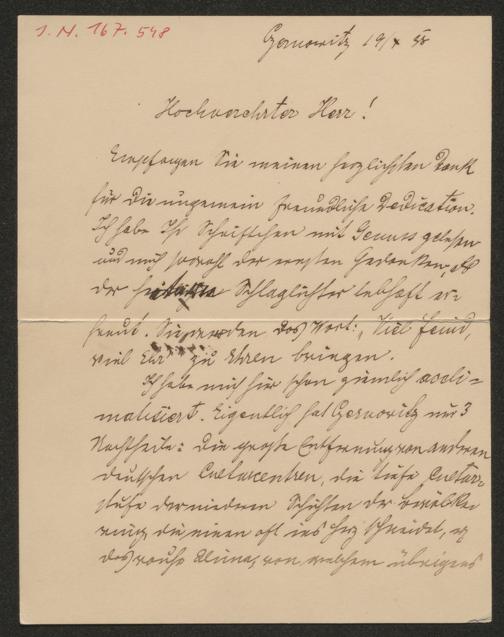 J. N. 167.548
Czernowitz 19/X 88
Hochverehrter Herr!
Empfangen Sie meinen herzlichsten Dank
für die ungemein freundliche Dedication.
Ich habe Ihr Schriftchen mit Genuss gelesen
und mich sowohl der ernsten Gedanken, als
der heiteren Schlaglichter lebhaft er=
freut. Sie werden das Wort: „Viel Feind,
viel Ehr" zu Ehren bringen.
Ich habe mich hier schon ziemlich accli=
matisiert. Eigentlich hat Czernowitz nur 3
Nachtheile: die große Entfernung von anderen
deutschen Culturcentren, die tiefe Cultur=
stufe der niederen Schichten der Bevölke
rung, die einem oft ins Herz schneidet,
das rauhe Klima, von welchem übrigens